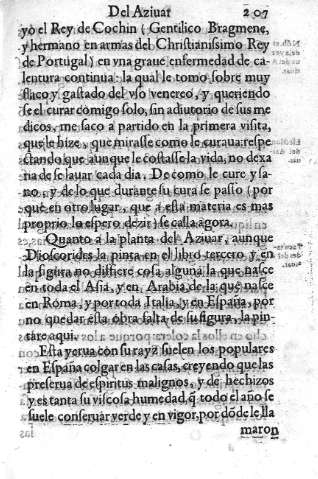 Del Aziuar 207
yo el Rey de Cochin (Gentilico Bragmene,
y hermano en armas del Christianissimo Rey
de Portugal) en vna graue enfermedad de ca-
lentura continua: la qual le tomo sobre muy
flaco y gastado del vso venereo, y queriendo
se el curar cõmigo solo, sin adiutorio de sus me
dicos, me saco a partido en la primera visita,
que le hize, que mirasse como le curaua respe-
ctando que aunque le costasse la vida, no dexa
ria de se lauar cada dia. De como le cure y sa-
no, y de lo que durante su cura se passo (por
que en otro lugar, que a esta materia es mas
proprio lo espero dezir) se calla agora.
Quanto a la planta del Azuar, aunque
Dioscorides la pinta en el libro tercero, y en
la figura no differe cosa alguna la que nasce
en toda el Asia, y en Arabia de la que nasce
en Roma, y por toda Italia, y en España, por
no quedar esta obra falta de su figura, la pin-
tare aqui.
Esta yerua con su rayz suelen los populares
en España colgar en las casas, creyendo que las
preserua de espiritus malignos, y de hechizos
y es tanta su viscosa humedad, q̃ todo el año se
suele conseruar verde y en vigor, por dõde le lla
maron